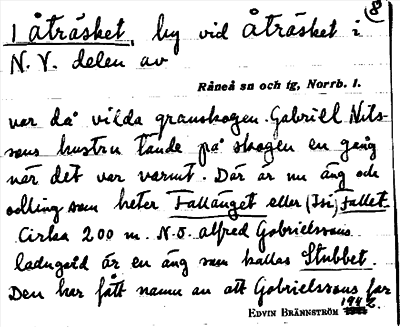 8
1 Åträsket, by vid Åträsket i
N. V. delen av
Råneå sn och tg, Norrb. l.
var då vilda granskogen. Gabriel Nils-
sons hustru tände på skogen en gång
när det var varmt. Där är nu äng och
odling som heter Fallänget eller (Isi) Fallet.
Cirka 200 m. N.O. Alfred Gabrielssons
ladugård är en äng som kallas Stubbet.
Den har fått namn av att Gabrielssons far
EDVIN BRÄNNSTRÖM 1942.